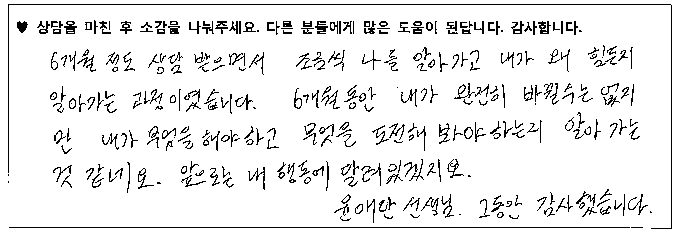 ♥ 상담을 마친 후 소감을 나눠주세요. 다른 분들에게 많은 도움이 된답니다. 감사합니다.
6개월 정도 상담 받으면서 조금씩 나를 알아가고 내가 왜 힘든지
알아가는 과정이였습니다. 6개월동안 내가 완전히 바뀔수는 없지
만 내가 무엇을 해야하고 무엇을 도전해 봐야하는지 알아 가는
것 같네요. 앞으로는 내 행동에 달려있겠지요.
윤애란 선생님. 그동안 감사했습니다.